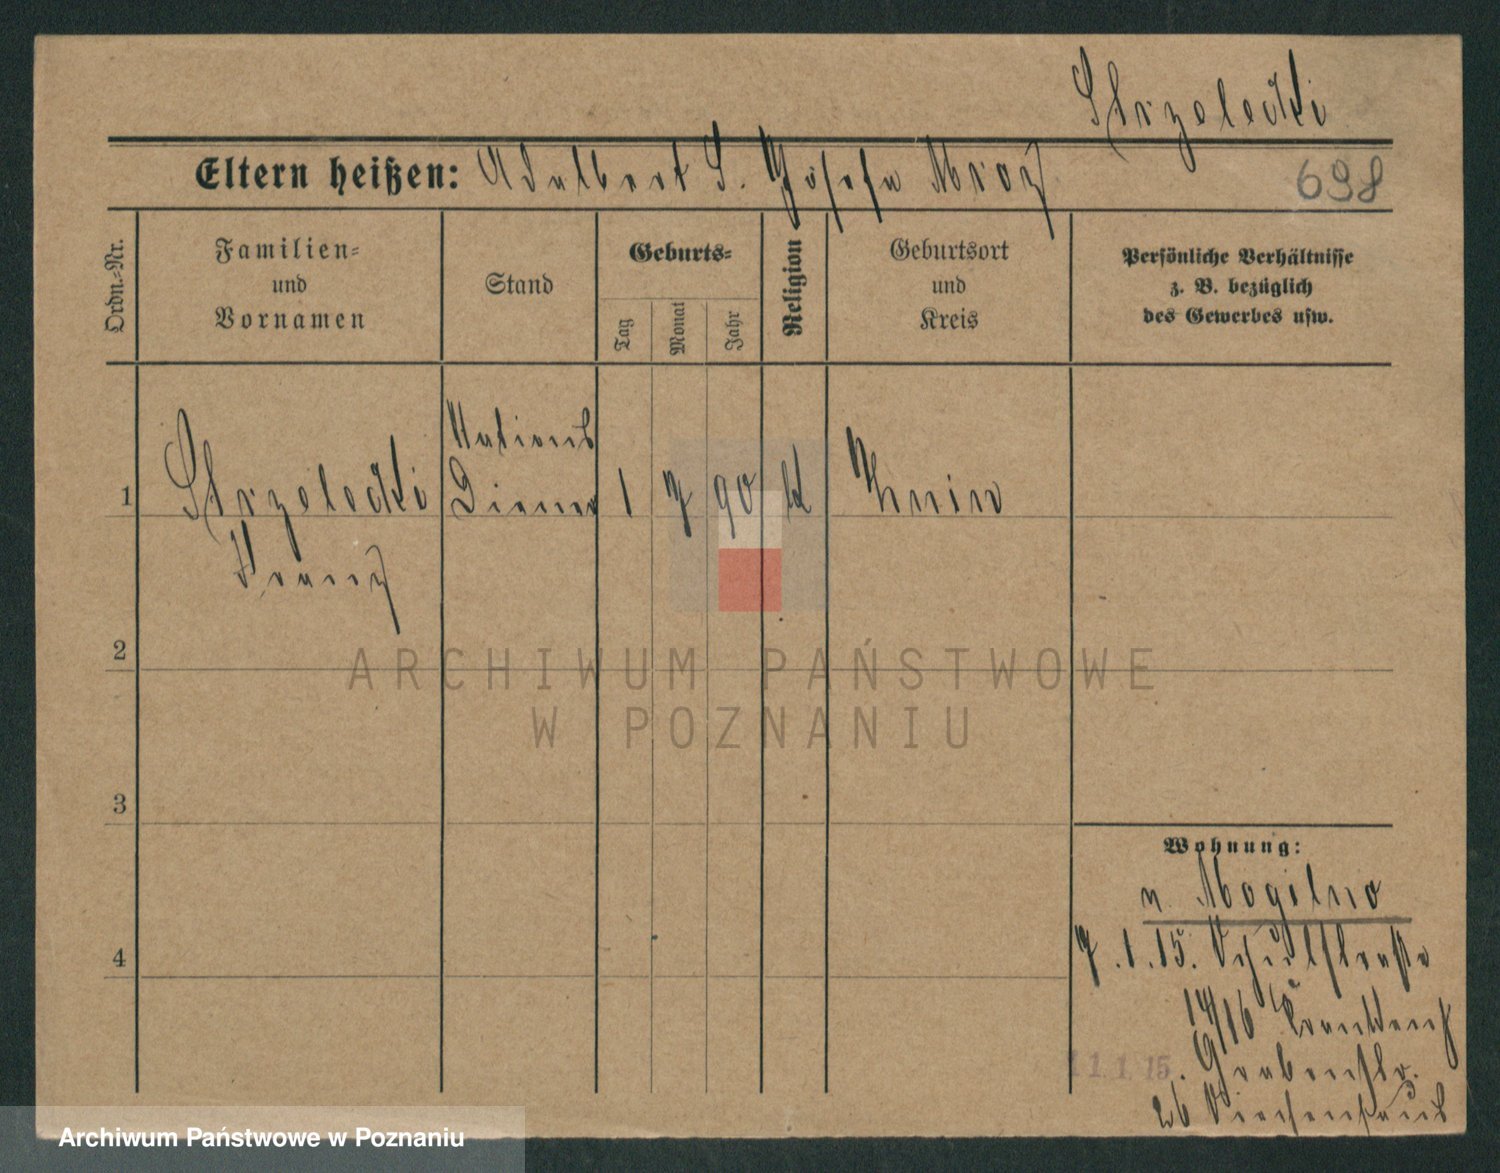 Strzelecki
Eltern heißen: Adalbert S. Josefa Mroz
698
Ordn.=Nr.
Familien=
und
Vornamen
Stand
Geburts=
Tag
Monat
Jahr
Religion
Geburtsort
und
Kreis
Persönliche Verhältnisse
z. B. bezüglich
des Gewerbes usw.
1
Strzelecki
Franz
Diener
1 7 90 k
Znin
2
ARCHIWUM PAŃSTWOWE
W POZNANIU
3
Wohnung:
n. Mogilno
4
7.1.15. Schulstraße
14/16 Krankenh
11.1.15. Grabenstr.
26 Siechenhaus
Archiwum Państwowe w Poznaniu